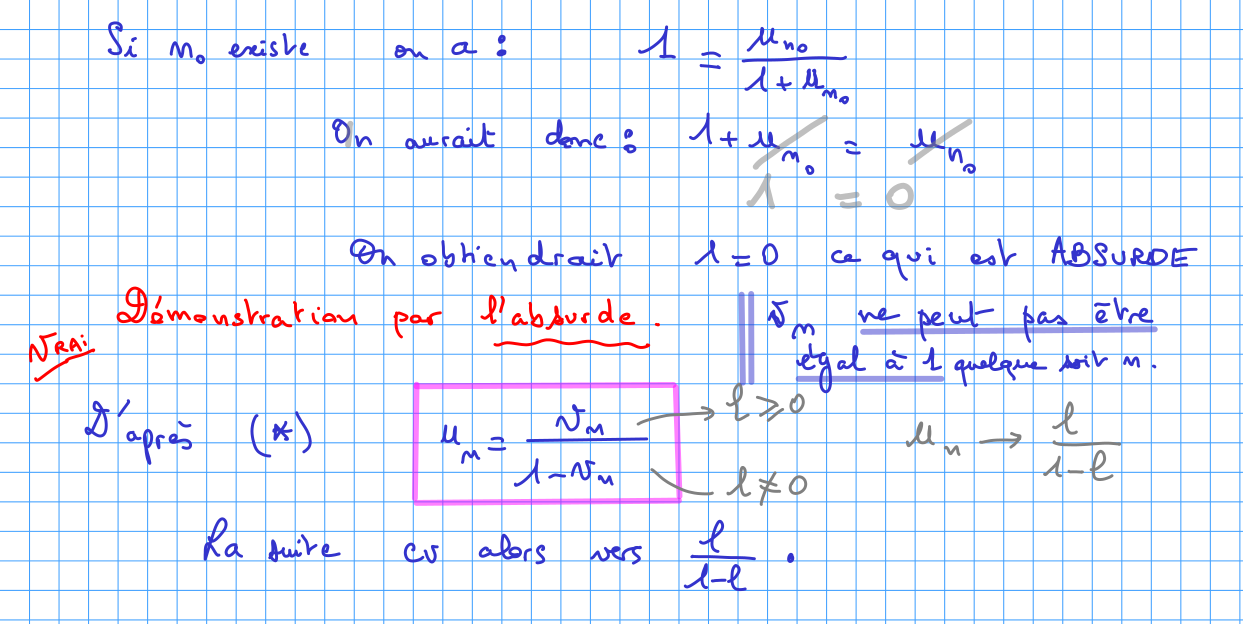 Si n₀ existe on a : 1 = u_{n₀} / (1 + u_{n₀})
On aurait donc : 1 + u_{n₀} = u_{n₀}
1 = 0
On obtiendrait 1 = 0 ce qui est ABSURDE
Démonstration par l'absurde. v_n ne peut pas être
VRAI égal à 1 quelque soit n.
D'après (*) u_n = v_n / (1 - v_n) → l ⩾ 0 u_n → l / (1 - l)
l ≠ 0
La suite cv alors vers l / (1 - l) .